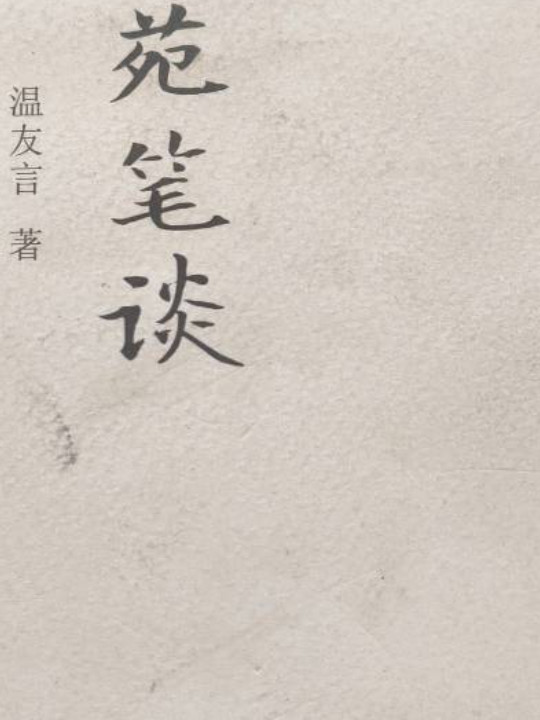 苑笔谈
温友言 著